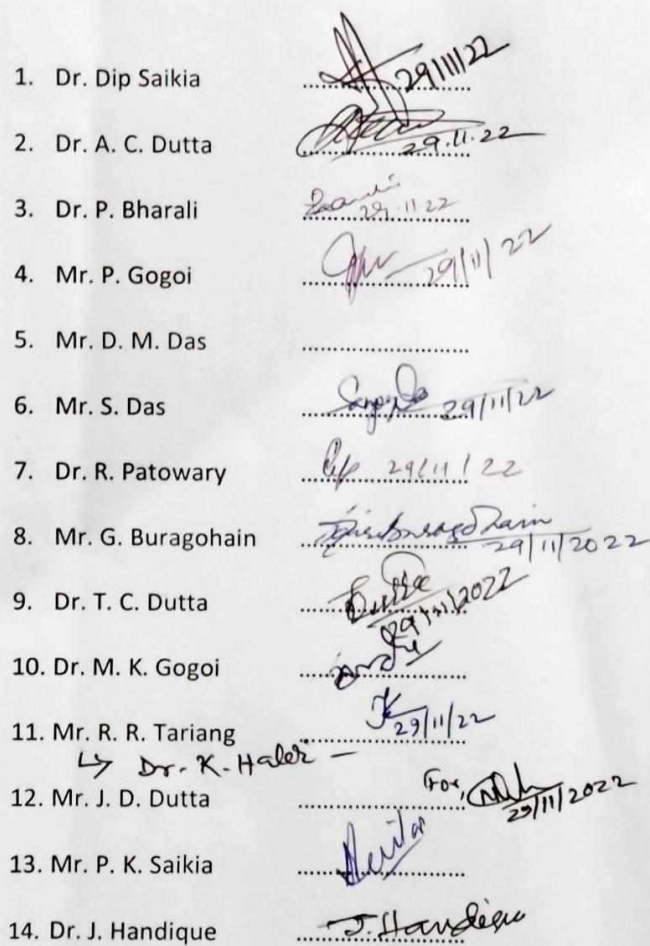 1. Dr. Dip Saikia .......................... 29/11/22
2. Dr. A. C. Dutta .......................... 29.11.22
3. Dr. P. Bharali .......................... 29.11.22
4. Mr. P. Gogoi .......................... 29/11/22
5. Mr. D. M. Das ..........................
6. Mr. S. Das .......................... 29/11/22
7. Dr. R. Patowary .......................... 29/11/22
8. Mr. G. Buragohain .......................... 29/11/2022
9. Dr. T. C. Dutta .......................... Dutta 29/11/2022
10. Dr. M. K. Gogoi ..........................
11. Mr. R. R. Tariang .......................... 29/11/22
↳ Dr. K. Haloi –
12. Mr. J. D. Dutta .......................... For, 29/11/2022
13. Mr. P. K. Saikia ..........................
14. Dr. J. Handique .......................... J. Handique